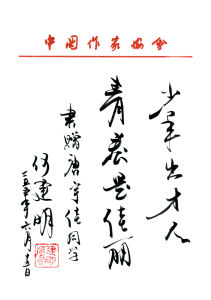 中国作家协会
少年出才人
青春是佳丽
书赠唐宇佳同学
何建明
二〇一五年六月十五日